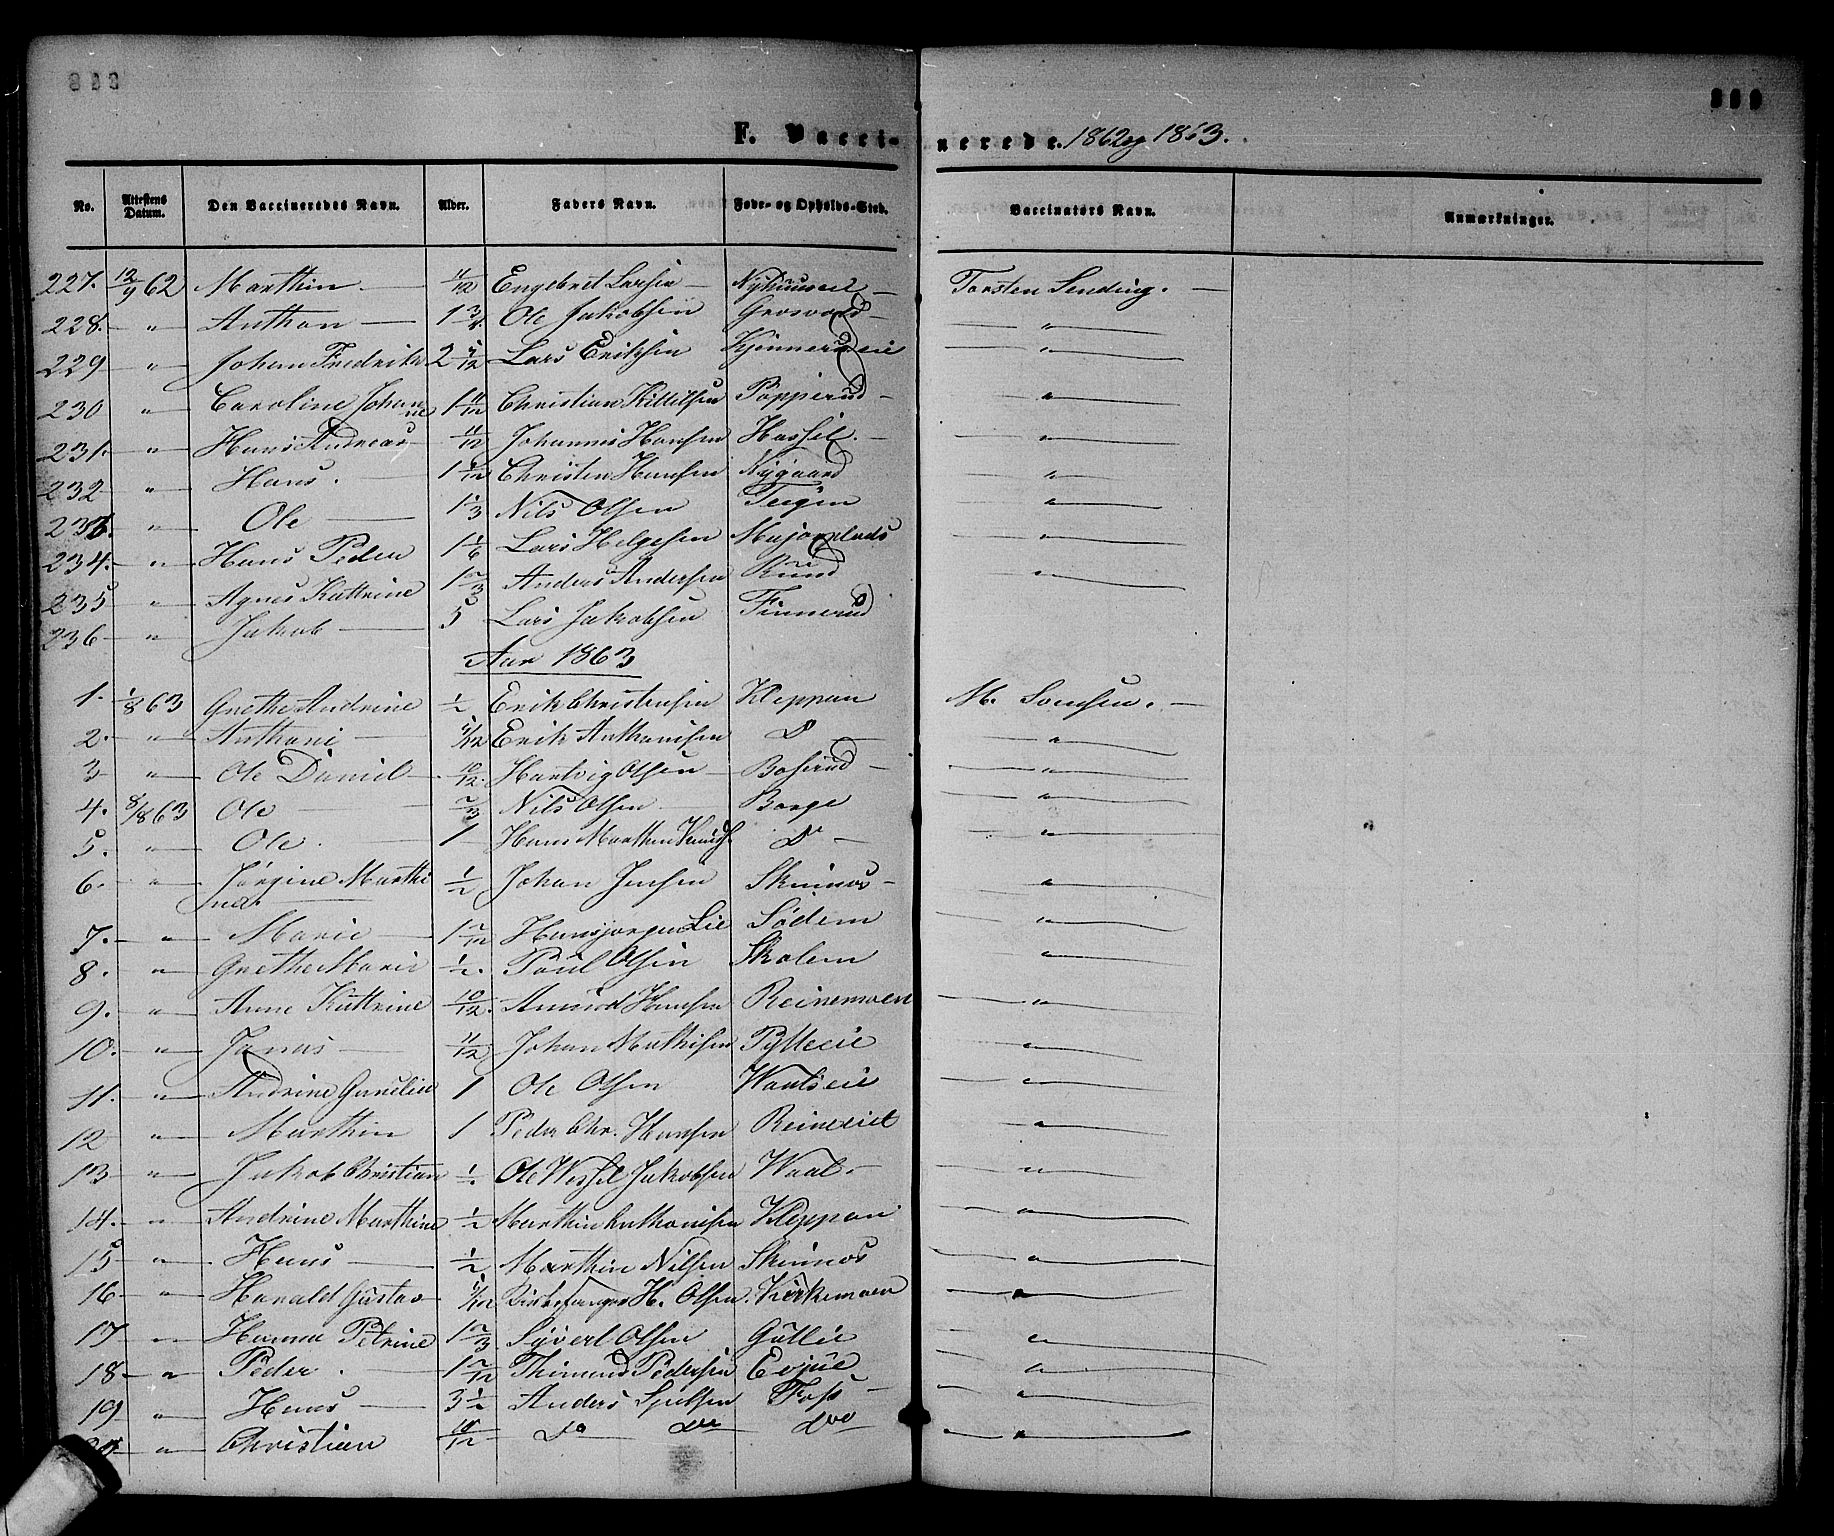 F. Vaccinerede. 1862 og 1863.
No. Attestens Datum. Den Vaccineredes Navn. Alder. Faders Navn. Føde- og Opholds-Sted. Vaccinators Navn. Anmærkninger.
227. 12/9 62 Marthin — 11/12 Engebret Larsen — Torsten Sending. —
228. " Anthon — 1 3/4 Ole Jakobsen — "
229 " Johan Fredrik 2 Lars Eriksen "
230 " Caroline Johanne 1 11/12 Christian Killilsen Popperud — "
231. " Hans Andreas 11/12 Johannes Hansen Hassel. — "
232 " Hans. — 1 Christen Hansen Nygaard "
233. " Ole — 1 Nils Olsen Teigen "
234. " Hans Peder 1 1/6 Lars Helgesen "
235 " Agnes Kattrine 1 2/3 Anders Andersen Rud "
236 " Jakob — 5 Lars Jakobsen Finnerud
Aar 1863
1. 1/8 63 Grethe Andrine 1/2 Erik Christensen Kleppan —
2. " Anthoni — Erik Anthonisen D — "
3 " Ole Daniel 10/12 Hartvig Olsen Boserud — "
4. 8/8 63 Ole — 2/3 Nils Olsen Borge "
5. " Ole. 1 Hans Marthin Do — "
6. " Jørgine Marthinea. 1/2 Johan Jensen Skinnos — "
7. " Marie — 1 2/12 Hansjørgen Lie Sødem "
8. " Grethe Marie 1/2. Poul Olsen Skalem "
9. " Anne Kattrine 10/12. Amund Hansen Reinemoen "
10. " Jonas — 11/12 Johan Mathisen Pytteeie "
11. " Andrine 1 Ole Olsen "
12 " Marthin 1 Peder Chr. Hansen "
13 " Jakob Christian 1/2 Ole Wessel Jakobsen Waal. — "
14. " Andrine Marthine 1/2 Marthin Anthonisen Kleppan "
15 " Hans — 1/2 Marthin Nilsen Skinnos "
16 " Harald Gustav H. Olsen. Kirkemoen "
17 " Hanna Petrine 1 2/3 Syvert Olsen "
18 " Peder. 1 2/12 Thimund Pedersen Evjue "
19 " Hans — 3 1/2 Anders Foss — "
" Christian 10/12 Do Do Do "